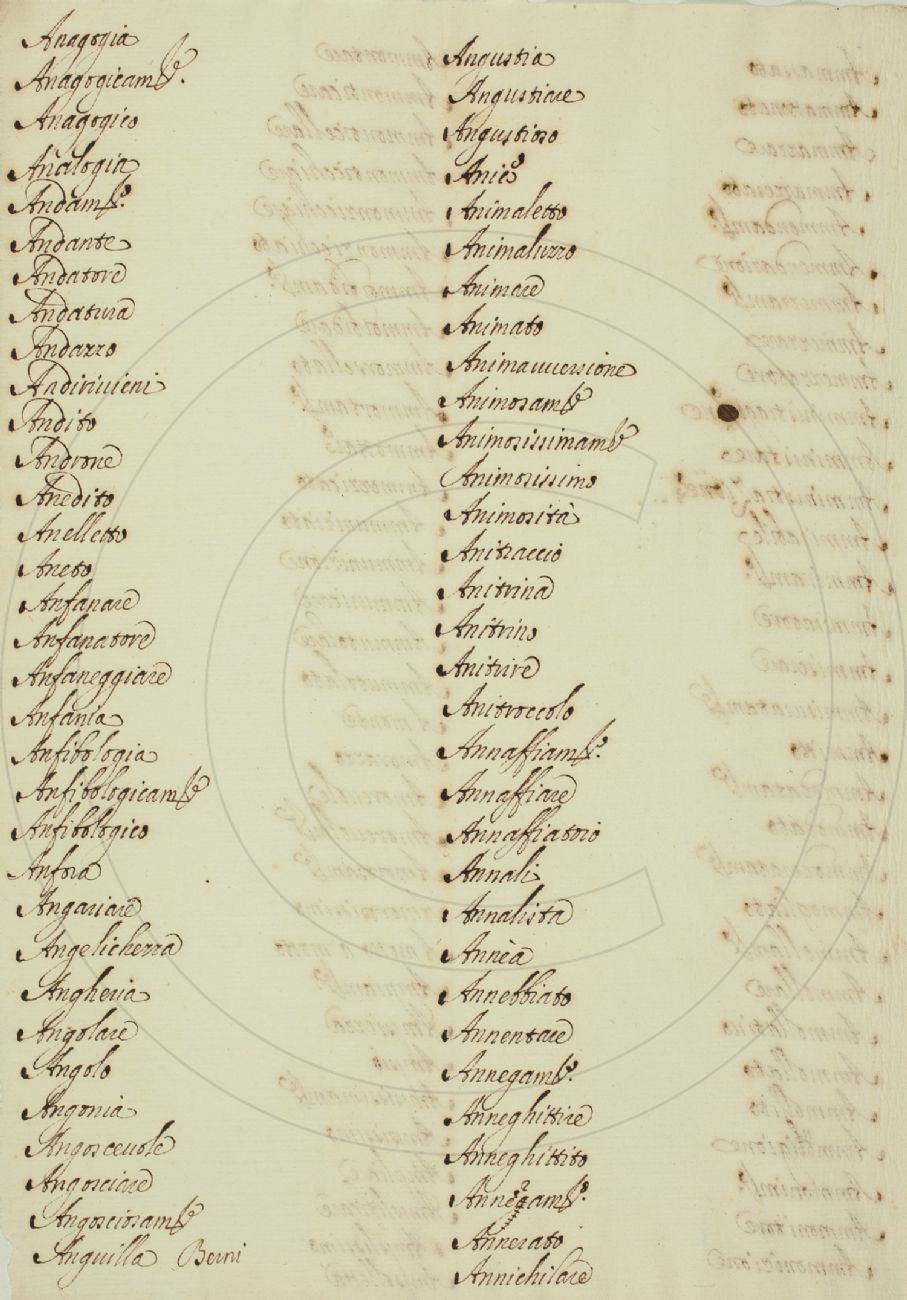 Anagogia
Anagogicamte.
Anagogico
Analogia
Andamto.
Andante
Andatore
Andatura
Andazzo
Andirivieni
Andito
Androne
Anedito
Anelletto
Aneto
Anfanare
Anfanatore
Anfaneggiare
Anfania
Anfibologia
Anfibologicamte
Anfibologico
Anfora
Angariare
Angelichezza
Angheria
Angolare
Angolo
Angonia
Angoscevole
Angosciare
Angosciosamte
Anguilla Berni
Angustia
Angustiare
Angustioso
Animaletto
Animaluzzo
Animare
Animato
Animavversione
Animosamte
Animosissimamte
Animosissimo
Animosità
Anitraccio
Anitrina
Anitrino
Anitrire
Anitroccolo
Annaffiamto.
Annaffiare
Annaffiatoio
Annali
Annalista
Annèa
Annebbiato
Annentare
Annegamto.
Anneghittire
Anneghittito
Annerato
Annichilare